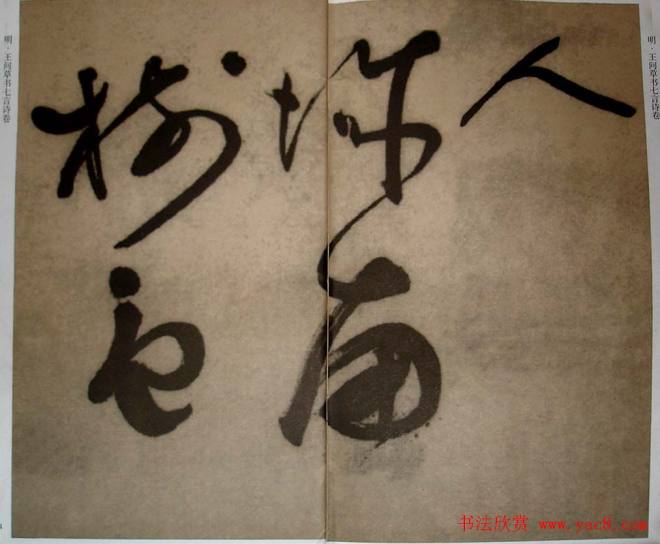 明·王问草书七言诗卷
人
南
樹色
明·王问草书七言诗卷
书法欣赏 www.yac8.com